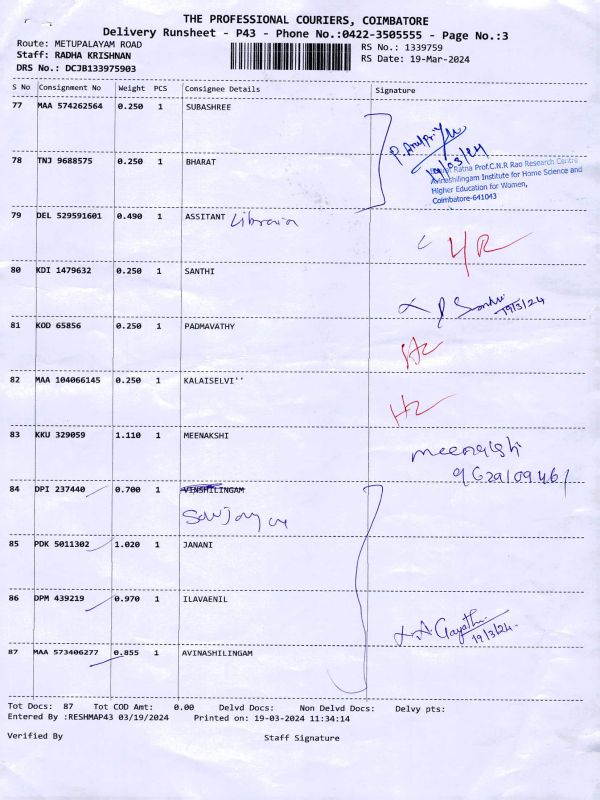 THE PROFESSIONAL COURIERS, COIMBATORE
Delivery Runsheet - P43 - Phone No.:0422-3505555 - Page No.:3
Route: METUPALAYAM ROAD
Staff: RADHA KRISHNAN
DRS No.: DCJB133975903
RS No.: 1339759
RS Date: 19-Mar-2024
S No Consignment No Weight PCS Consignee Details Signature
77 MAA 574262564 0.250 1 SUBASHREE
19/03/24
78 TNJ 9688575 0.250 1 BHARAT
Ratna Prof.C.N.R Rao Research Centre
Avinashilingam Institute for Home Science and
Higher Education for Women,
Coimbatore-641043
79 DEL 529591601 0.490 1 ASSITANT Librarian
80 KDI 1479632 0.250 1 SANTHI
19/3/24
81 KOD 65856 0.250 1 PADMAVATHY
82 MAA 104066145 0.250 1 KALAISELVI''
83 KKU 329059 1.110 1 MEENAKSHI
meenakshi
84 DPI 237440 0.700 1 VINSHILINGAM
85 PDK 5011302 1.020 1 JANANI
86 DPM 439219 0.970 1 ILAVAENIL
A. Gayathri
19/3/24.
87 MAA 573406277 0.855 1 AVINASHILINGAM
Tot Docs: 87 Tot COD Amt: 0.00 Delvd Docs: Non Delvd Docs: Delvy pts:
Entered By :RESHMAP43 03/19/2024 Printed on: 19-03-2024 11:34:14
Verified By Staff Signature